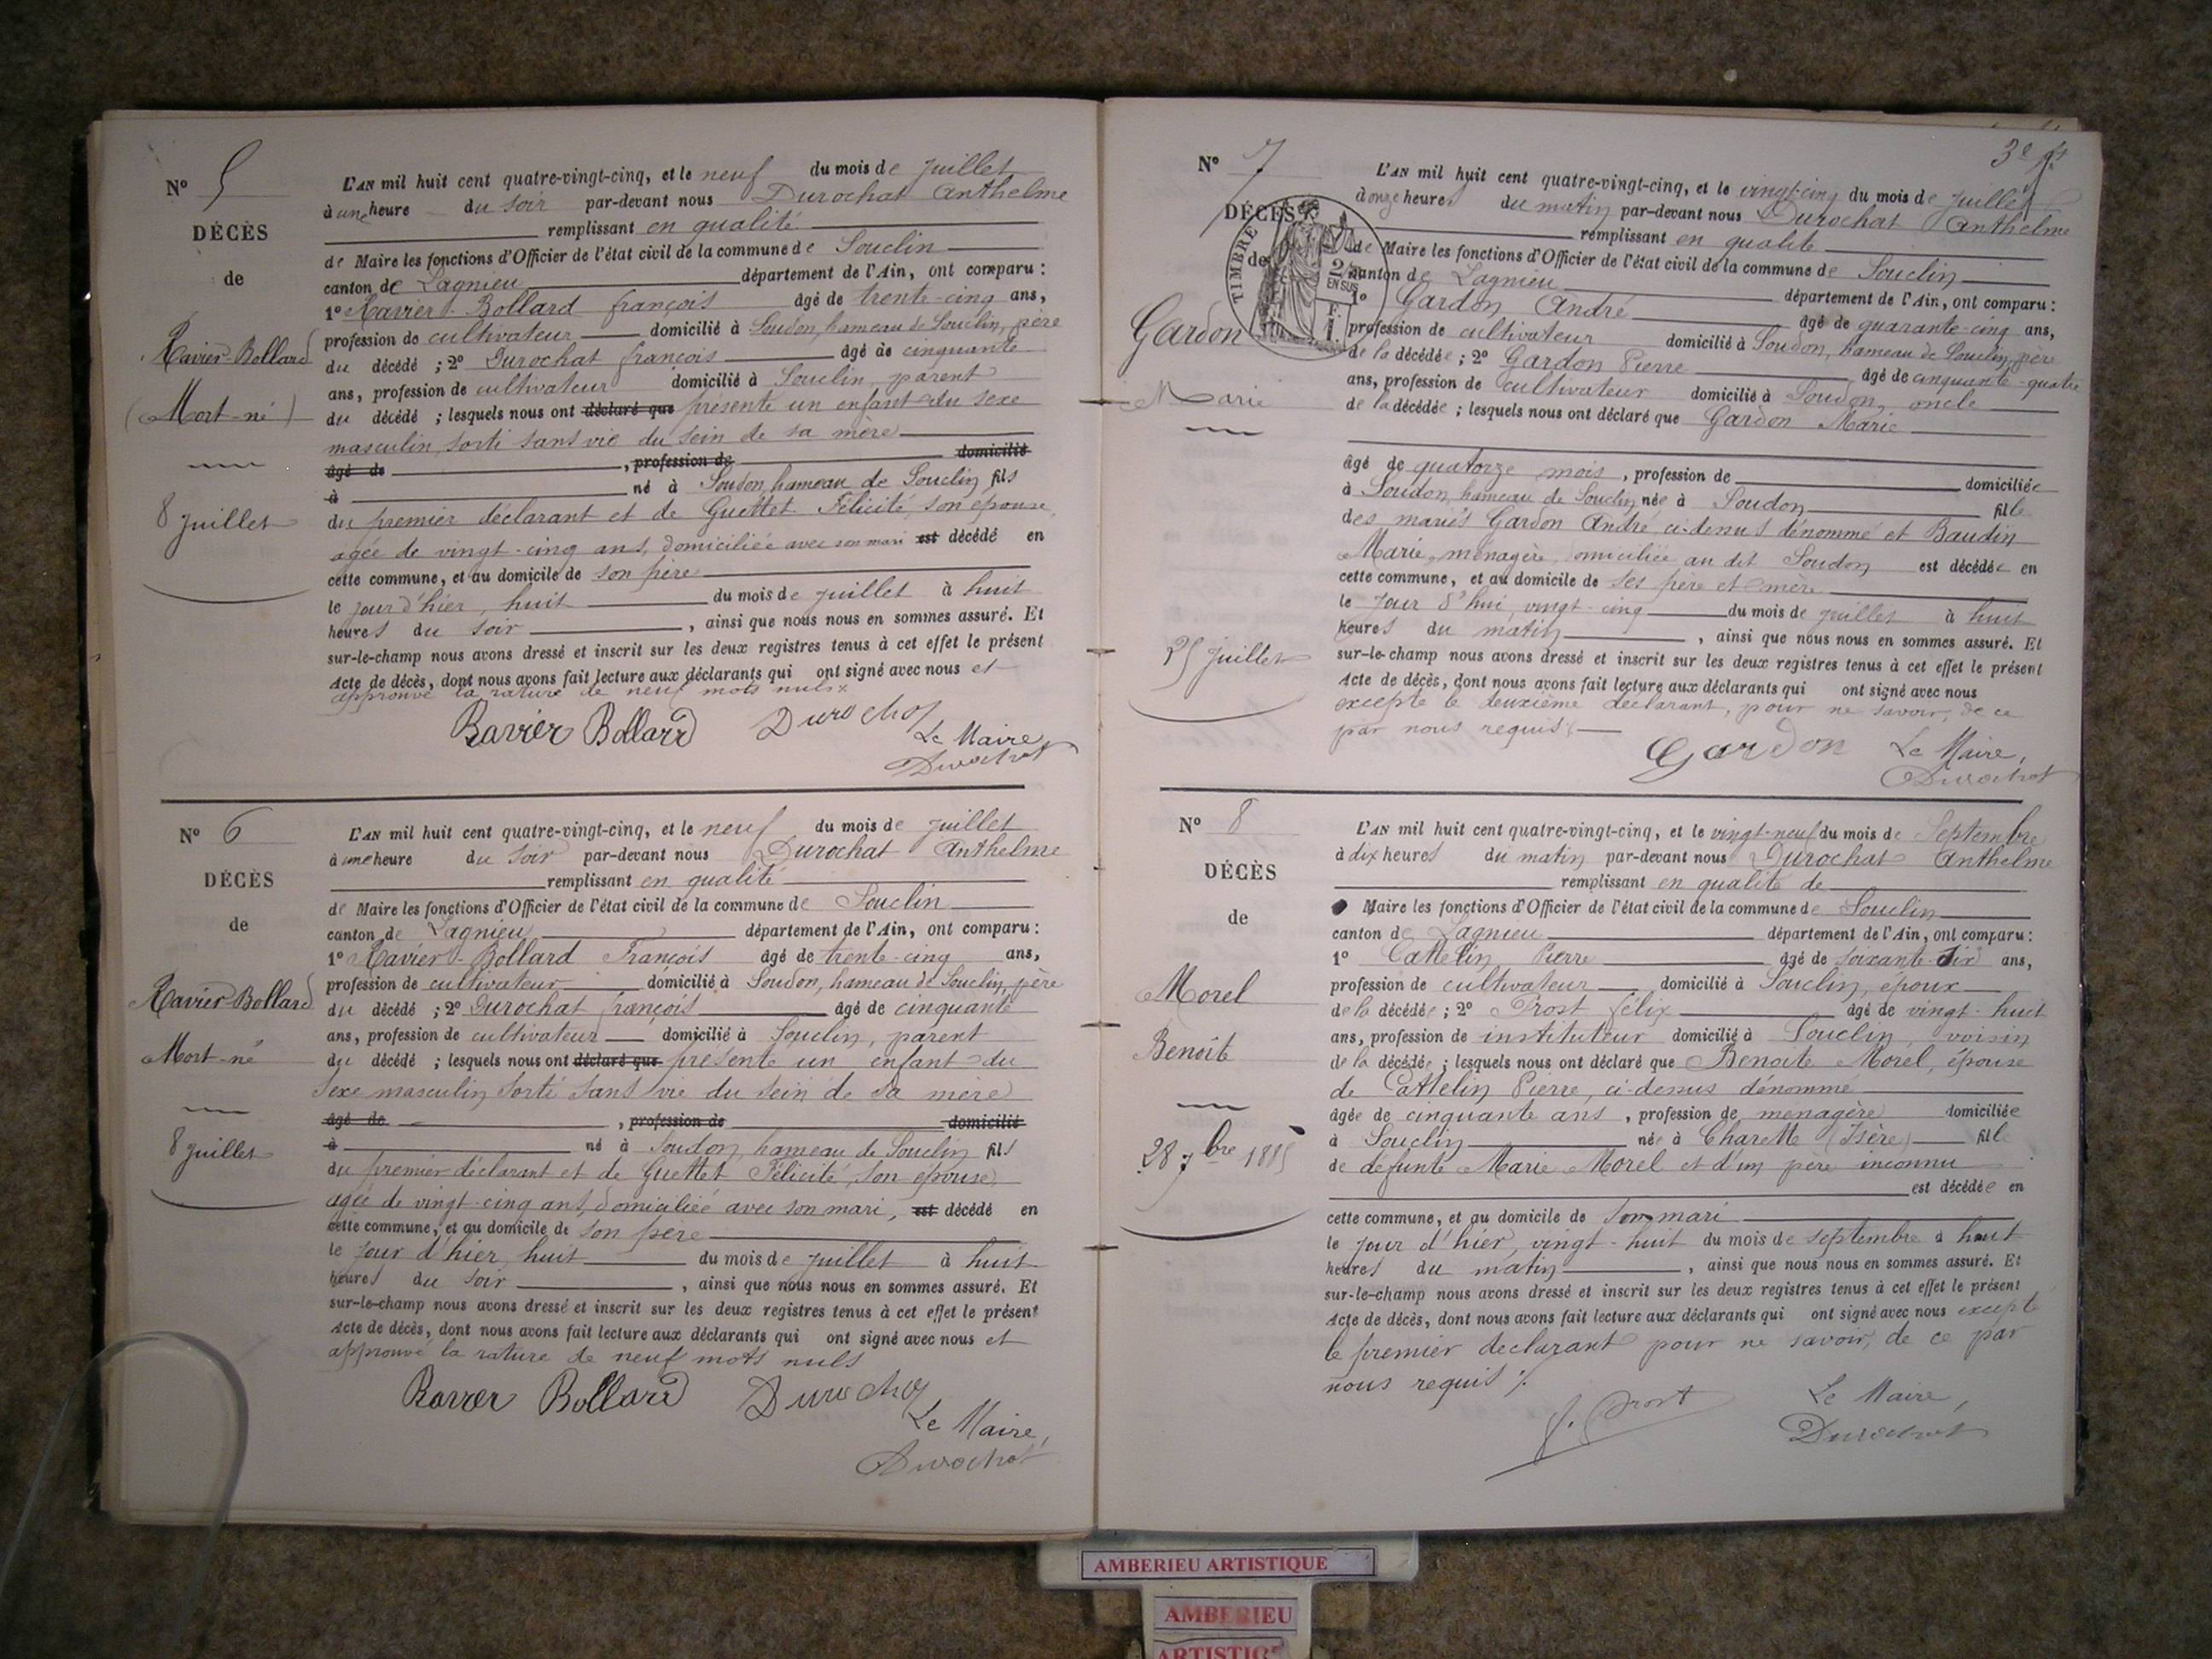 N° 5
DÉCÈS
de
Ravier-Bollard
(Mort-né)
8 Juillet
L'AN mil huit cent quatre-vingt-cinq, et le neuf du mois de Juillet
à une heure du soir par-devant nous Durochat Anthelme
remplissant en qualité
de Maire les fonctions d'Officier de l'état civil de la commune de Souclin
canton de Lagnieu département de l'Ain, ont comparu :
1° Ravier-Bollard françois âgé de trente-cinq ans,
profession de cultivateur domicilié à Soudon, hameau de Souclin, père
du décédé ; 2° Durochat françois âgé de cinquante
ans, profession de cultivateur domicilié à Souclin, parent
du décédé ; lesquels nous ont déclaré que présenté un enfant du sexe
masculin, sorti sans vie du sein de sa mère
âgé de , profession de domicilié
à né à Soudon, hameau de Souclin fils
du premier déclarant et de Guettet Félicité, son épouse,
agée de vingt-cinq ans, domiciliée avec son mari est décédé en
cette commune, et au domicile de son père
le jour d'hier, huit du mois de juillet à huit
heures du soir , ainsi que nous nous en sommes assuré. Et
sur-le-champ nous avons dressé et inscrit sur les deux registres tenus à cet effet le présent
Acte de décès, dont nous avons fait lecture aux déclarants qui ont signé avec nous et
approuvé la rature de neuf mots nuls
Ravier Bollard Durochat
Le Maire,
Durochat
N° 6
DÉCÈS
de
Ravier-Bollard
Mort-né
8 Juillet
L'AN mil huit cent quatre-vingt-cinq, et le neuf du mois de Juillet
à une heure du soir par-devant nous Durochat Anthelme
remplissant en qualité
de Maire les fonctions d'Officier de l'état civil de la commune de Souclin
canton de Lagnieu département de l'Ain, ont comparu :
1° Ravier-Bollard François âgé de trente-cinq ans,
profession de cultivateur domicilié à Soudon, hameau de Souclin, père
du décédé ; 2° Durochat françois âgé de cinquante
ans, profession de cultivateur domicilié à Souclin, parent
du décédé ; lesquels nous ont déclaré que présenté un enfant du
sexe masculin sorti sans vie du sein de sa mère
âgé de , profession de domicilié
à né à Soudon, hameau de Souclin fils
du premier déclarant et de Guettet Félicité, son épouse,
agée de vingt-cinq ans, domiciliée avec son mari, est décédé en
cette commune, et au domicile de son père
le jour d'hier, huit du mois de juillet à huit
heures du soir , ainsi que nous nous en sommes assuré. Et
sur-le-champ nous avons dressé et inscrit sur les deux registres tenus à cet effet le présent
Acte de décès, dont nous avons fait lecture aux déclarants qui ont signé avec nous et
approuvé la rature de neuf mots nuls
Ravier Bollard Durochat
Le Maire,
Durochat
3e ft
N° 7
DÉCÈS
de
Gardon
Marie
25 Juillet
TIMBRE
2/10
EN SUS
F.
1.
L'AN mil huit cent quatre-vingt-cinq, et le vingt-cinq du mois de Juillet
à onze heures du matin par-devant nous Durochat Anthelme
remplissant en qualité
de Maire les fonctions d'Officier de l'état civil de la commune de Souclin
canton de Lagnieu département de l'Ain, ont comparu :
1° Gardon André âgé de quarante-cinq ans,
profession de cultivateur domicilié à Soudon, hameau de Souclin, père
de la décédée ; 2° Gardon Pierre âgé de cinquante-quatre
ans, profession de cultivateur domicilié à Soudon, oncle
de la décédée ; lesquels nous ont déclaré que Gardon Marie
âgé de quatorze mois, profession de domiciliée
à Soudon, hameau de Souclin née à Soudon fille
des mariés Gardon André, ci-dessus dénommé et Baudin
Marie, ménagère, domiciliée au dit Soudon est décédée en
cette commune, et au domicile de ses père et mère
le jour d'hui, vingt-cinq du mois de juillet à huit
heures du matin , ainsi que nous nous en sommes assuré. Et
sur-le-champ nous avons dressé et inscrit sur les deux registres tenus à cet effet le présent
Acte de décès, dont nous avons fait lecture aux déclarants qui ont signé avec nous
excepté le deuxième déclarant, pour ne savoir, de ce
par nous requis
Gardon Le Maire,
Durochat
N° 8
DÉCÈS
de
Morel
Benoite
28 7bre 1885
L'AN mil huit cent quatre-vingt-cinq, et le vingt-neuf du mois de Septembre
à dix heures du matin par-devant nous Durochat Anthelme
remplissant en qualité de
Maire les fonctions d'Officier de l'état civil de la commune de Souclin
canton de Lagnieu département de l'Ain, ont comparu :
1° Cattelin Pierre âgé de soixante-dix ans,
profession de cultivateur domicilié à Souclin, époux
de la décédée ; 2° Prost félix âgé de vingt-huit
ans, profession de instituteur domicilié à Souclin, voisin
de la décédée ; lesquels nous ont déclaré que Benoite Morel, épouse
de Cattelin Pierre, ci-dessus dénommé
âgée de cinquante ans, profession de ménagère domiciliée
à Souclin née à Charette (Isère) fille
de défunte Marie Morel et d'un père inconnu
est décédée en
cette commune, et au domicile de son mari
le jour d'hier, vingt-huit du mois de septembre à huit
heures du matin , ainsi que nous nous en sommes assuré. Et
sur-le-champ nous avons dressé et inscrit sur les deux registres tenus à cet effet le présent
Acte de décès, dont nous avons fait lecture aux déclarants qui ont signé avec nous excepté
le premier déclarant pour ne savoir, de ce par
nous requis ./.
f. Prost
Le Maire,
Durochat
AMBERIEU ARTISTIQUE
AMBERIEU
ARTISTIQUE